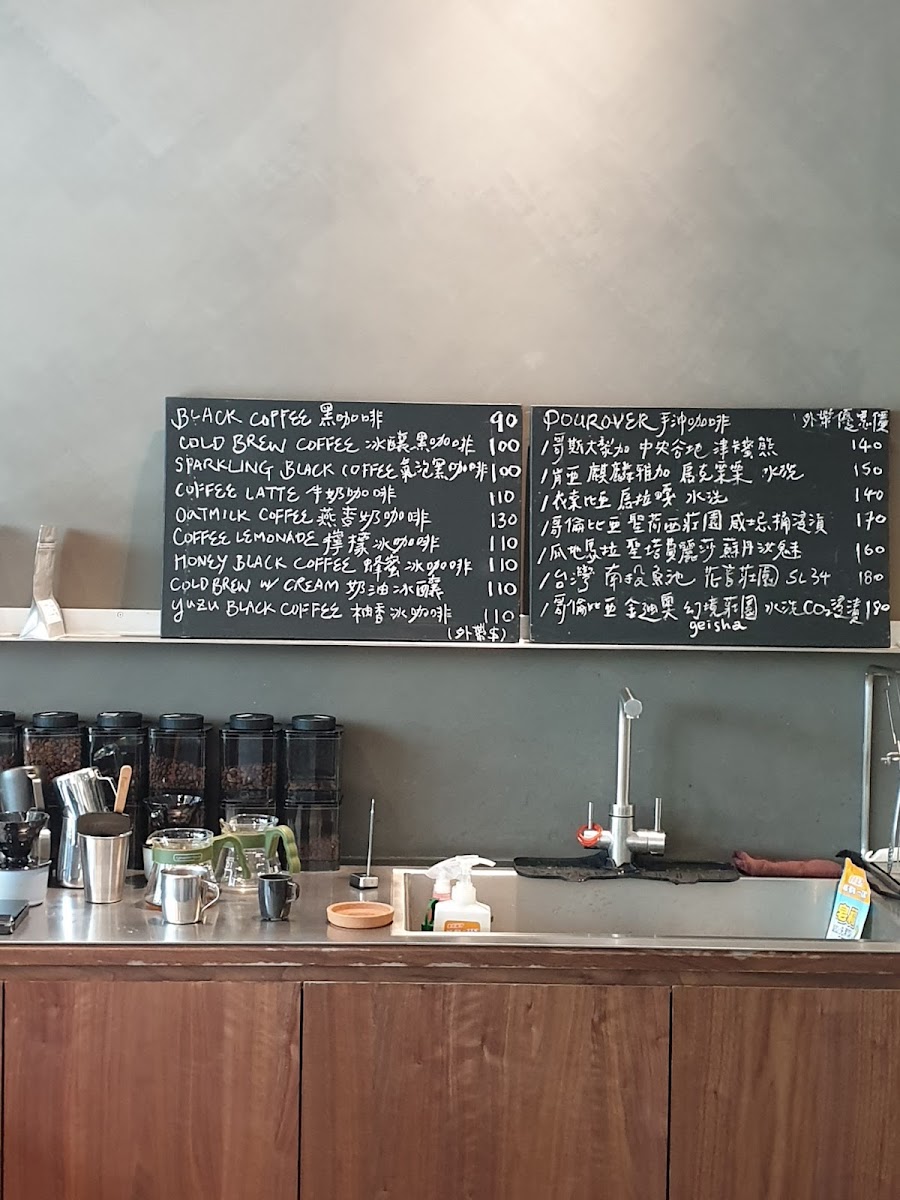 BLACK COFFEE 黑咖啡 90
COLD BREW COFFEE 冰釀黑咖啡 100
SPARKLING BLACK COFFEE 氣泡黑咖啡 100
COFFEE LATTE 牛奶咖啡 110
OATMILK COFFEE 燕麥奶咖啡 130
COFFEE LEMONADE 檸檬冰咖啡 110
HONEY BLACK COFFEE 蜂蜜冰咖啡 110
COLD BREW W/ CREAM 奶油冰釀 110
YUZU BLACK COFFEE 柚香冰咖啡 110
POUROVER 手沖咖啡 外帶優惠價
/哥斯大黎加 中央谷地 蜜熊 140
/肯亞 麒麟雅加 水洗 150
/衣索比亞 水洗 140
/哥倫比亞 聖荷西莊園 威士忌桶浸漬 170
/瓜地馬拉 聖塔費麗莎 160
/台灣 南投魚池 莊園 SL34 180
/哥倫比亞 金迪奧 幻境莊園 水洗CO2浸漬 180
geisha